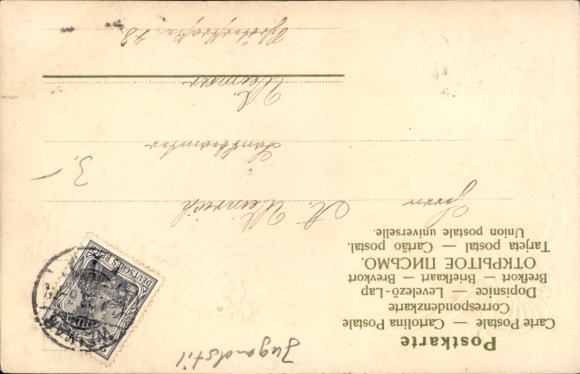 Postkarte
Carte Postale — Cartolina Postale
Correspondenzkarte
Dopisnice — Levelező-Lap
Brefkort — Briefkaart — Brevkort
ОТКРЫТОЕ ПИСЬМО.
Tarjeta postal — Cartão postal.
Union postale universelle.
Herrn
A. Weinreich
3,-
Weimar
DEUTSCHES REICH
Jugendstil